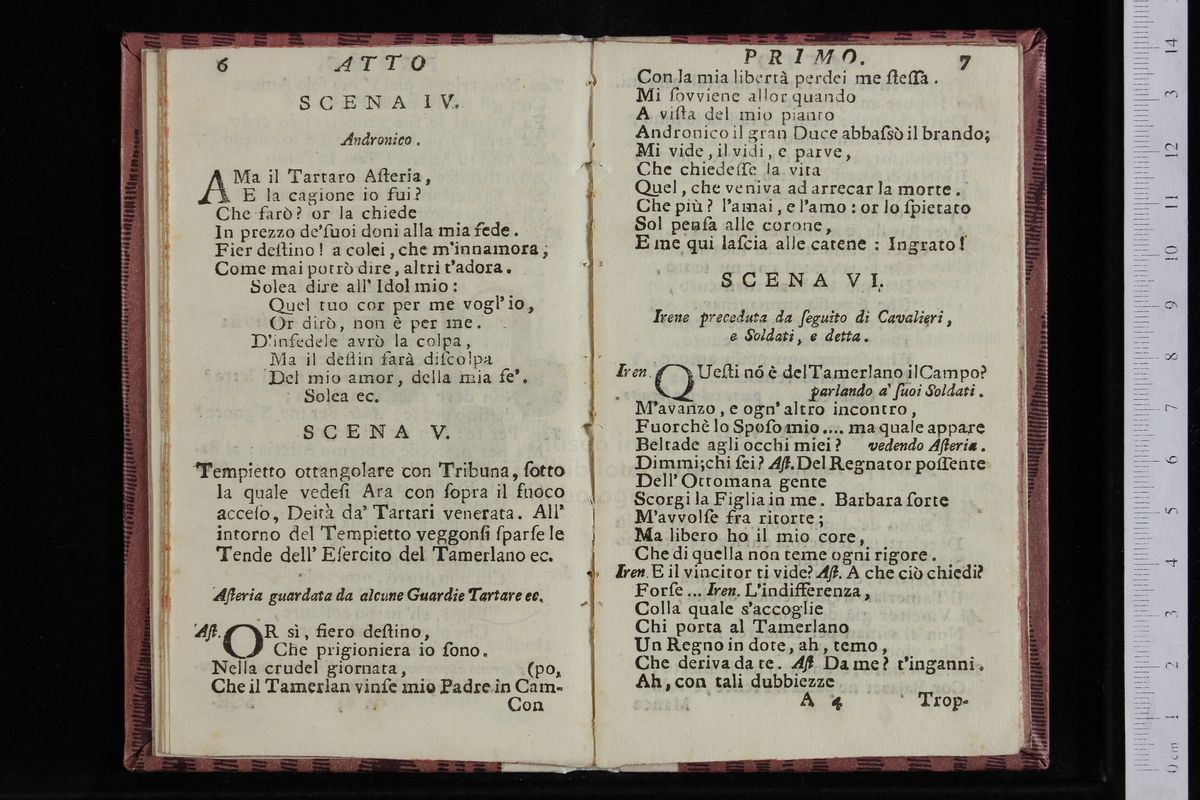 6 ATTO
SCENA IV.
Andronico.
AMa il Tartaro Aſteria,
E la cagione io fui?
Che farò? or la chiede
In prezzo de'ſuoi doni alla mia fede.
Fier deſtino! a colei, che m'innamora,
Come mai potrò dire, altri t'adora.
Solea dire all' Idol mio:
Quel tuo cor per me vogl'io,
Or dirò, non è per me.
D'infedele avrò la colpa,
Ma il deſtin farà diſcolpa
Del mio amor, della mia fe'.
Solea ec.
SCENA V.
Tempietto ottangolare con Tribuna, ſotto
la quale vedeſi Ara con ſopra il fuoco
acceſo, Deità da' Tartari venerata. All'
intorno del Tempietto veggonſi ſparſe le
Tende dell' Eſercito del Tamerlano ec.
Aſteria guardata da alcune Guardie Tartare ec.
Aſt. OR sì, fiero deſtino,
Che prigioniera io ſono.
Nella crudel giornata, (po,
Che il Tamerlan vinſe mio Padre in Cam-
Con
PRIMO. 7
Con la mia libertà perdei me ſteſſa.
Mi ſovviene allor quando
A viſta del mio pianto
Andronico il gran Duce abbaſsò il brando;
Mi vide, il vidi, e parve,
Che chiedeſſe la vita
Quel, che veniva ad arrecar la morte.
Che più? l'amai, e l'amo: or lo ſpietato
Sol penſa alle corone,
E me qui laſcia alle catene: Ingrato!
SCENA VI.
Irene preceduta da ſeguito di Cavalieri,
e Soldati, e detta.
Iren. QUeſti nó è del Tamerlano il Campo?
parlando a' ſuoi Soldati.
M'avanzo, e ogn' altro incontro,
Fuorchè lo Spoſo mio.... ma quale appare
Beltade agli occhi miei? vedendo Aſteria.
Dimmi; chi ſei? Aſt. Del Regnator poſſente
Dell' Ottomana gente
Scorgi la Figlia in me. Barbara ſorte
M'avvolſe fra ritorte;
Ma libero ho il mio core,
Che di quella non teme ogni rigore.
Iren. E il vincitor ti vide? Aſt. A che ciò chiedi?
Forſe... Iren. L'indifferenza,
Colla quale s'accoglie
Chi porta al Tamerlano
Un Regno in dote, ah, temo,
Che deriva da te. Aſt. Da me? t'inganni.
Ah, con tali dubbiezze
A 4 Trop-
14
3
12
11
10
9
8
7
6
5
4
3
2
1
0 cm